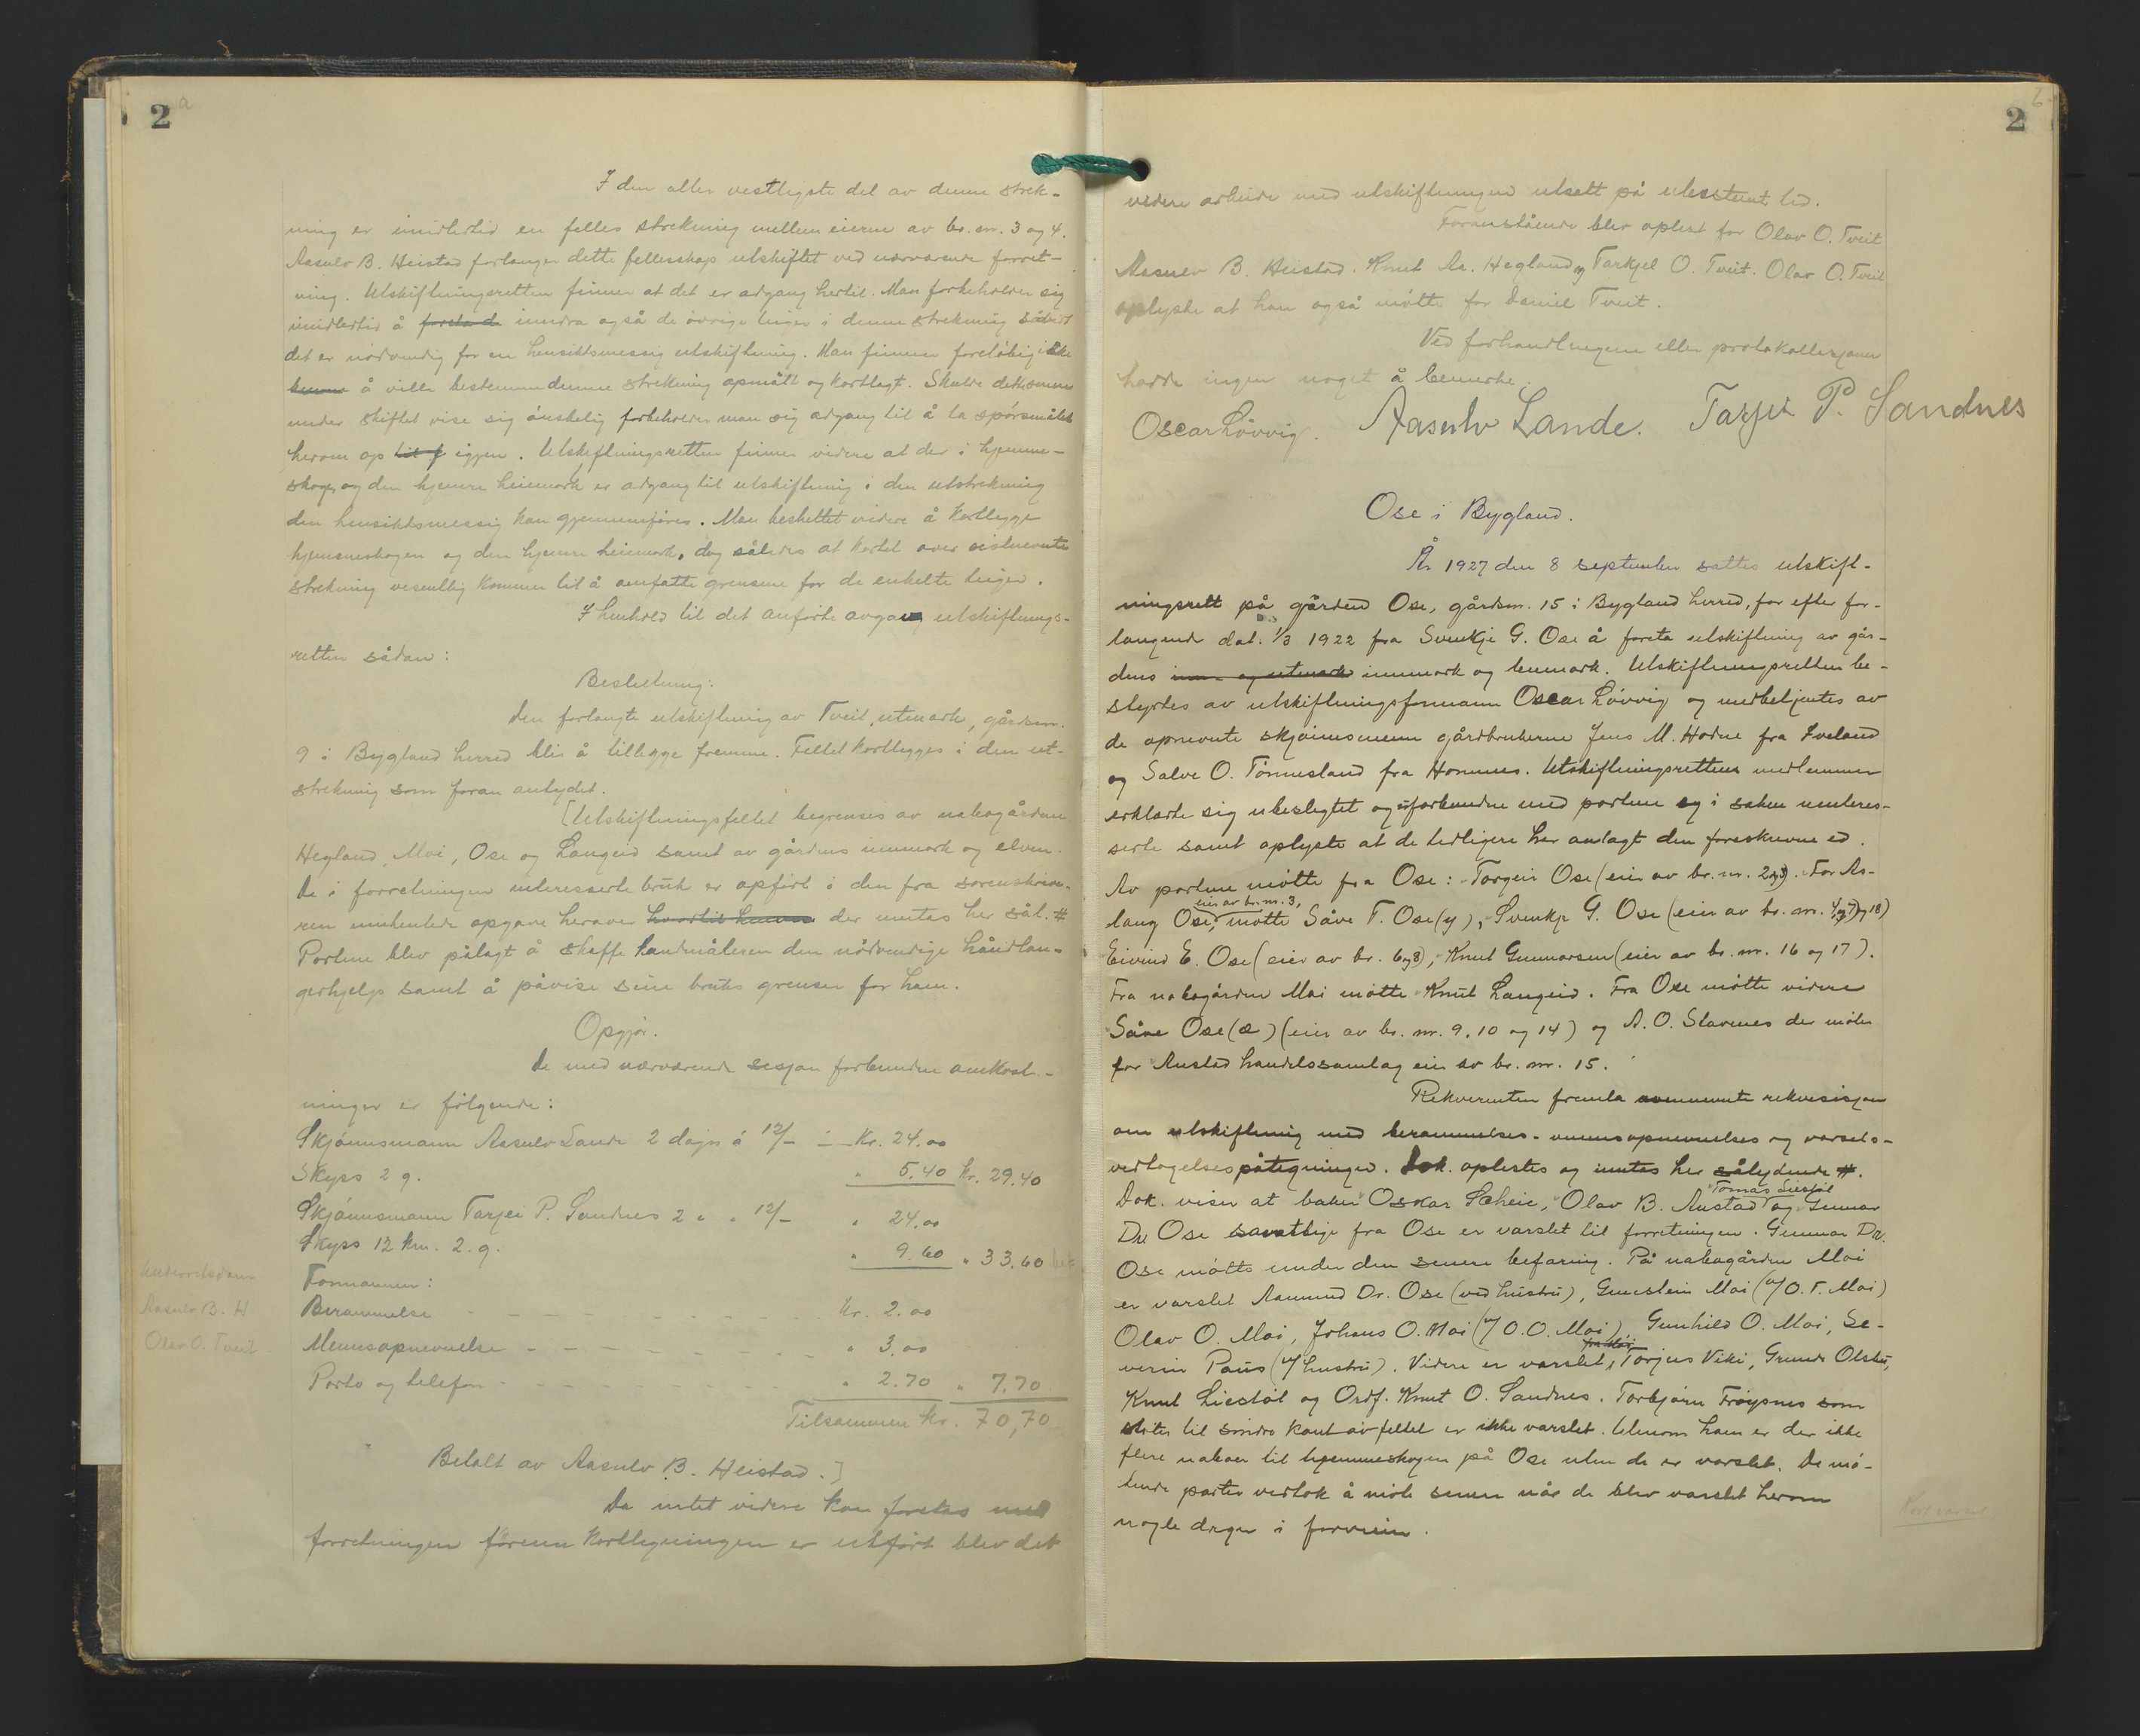 2 a
I den aller vestligste del av denne strek-
ning er imidlertid en felles strekning mellem eierne av br. nr. 3 og 4.
Aasulv B. Heistad forlanger dette fellesskap utskiftet ved nærværende forret-
ning. Utskiftningsretten finner at det er adgang hertil. Man forbeholder sig
imidlertid å foreta de inndra også de øvrige teiger i denne strekning såvidt
det er nødvendig for en hensiktsmessig utskiftning. Man finner foreløbig ikke
å ville bestemme denne strekning opmålt og kartlagt. Skulde det senere
under skiftet vise sig ønskelig forbeholder man sig adgang til å ta spørsmålet
herom op til f igjen. Utskiftningsretten finner videre at der i hjemme-
skogen og den hjemre heiemark er adgang til utskiftning i den utstrekning
den hensiktsmessig kan gjennemføres. Man besluttet videre å kartlegge
hjemmeskogen og den hjemre heiemark, dog således at kartet over sistnevnte
strekning vesentlig kommer til å omfatte grensene for de enkelte teiger.
I henhold til det anførte avgav utskiftnings-
retten sådan:
Beslutning:
Den forlangte utskiftning av Tveit, utmark, gårdsnr.
9 i Bygland herred blir å tillegge fremme. Feltet kartlegges i den ut-
strekning som foran antydet.
[Utskiftningsfeltet begrenses av nabogårdene
Hegland, Moi, Ose og Langeid samt av gårdens innmark og elven.
De i forretningen interesserte bruk er opført i den fra sorenskrive-
ren innhentede opgave herover der inntas her sål. #
Partene blev pålagt å skaffe landmåleren den nødvendige håndlan-
gerhjelp samt å påvise sine bruks grenser for ham.
Opgjør.
De med nærværende sesjon forbundne omkost-
ninger er følgende:
Skjønnsmann Aasulv Lande 2 dager á 12/- Kr. 24.00
Skyss 2 g. " 5.40 Kr. 29.40
Skjønnsmann Tarjei P. Sandnes 2 " " 12/- " 24.00
Skyss 12 km. 2. g. " 9.60 " 33.60
Formannen:
Berammelse Kr. 2.00
Aasulv B. H.
Mennsopnevnelse " 3.00
Olav O. Tveit
Porto og telefon " 2.70 " 7.70
Tilsammen kr. 70,70
Betalt av Aasulv B. Heistad.]
Da intet videre kan foretas med
forretningen førenn kartlegningen er utført blev det
2 b
videre arbeide med utskiftningen utsatt på ubestemt tid.
Foranstående blev oplest for Olav O. Tveit
Aasulv B. Heistad. Knut Aa. Hegland og Tarkjel O. Tveit. Olav O. Tveit
oplyste at han også møtte for Daniel Tveit.
Ved forhandlingene eller protokollasjonen
hadde ingen noget å bemerke.
Oscar Løvvig. Aasulv Lande. Tarjei P. Sandnes
Ose i Bygland.
År 1927 den 8 september sattes utskift-
ningsrett på gården Ose, gårdsnr. 15 i Bygland herred, for efter for-
langende dat. 1/3 1922 fra Svenkje G. Ose å foreta utskiftning av går-
dens inn- og utmark innmark og heimark. Utskiftningsretten be-
styrtes av utskiftningsformann Oscar Løvvig og medbetjentes av
de opnevnte skjønnsmenn gårdbrukerne Jens M. Hodne fra Iveland
og Salve O. Tønnesland fra Hornnes. Utskiftningsrettens medlemmer
erklærte sig ubeslegtet og uforbundne med partene og i saken uinteres-
serte samt oplyste at de tidligere har avlagt den foreskrevne ed.
Av partene møtte fra Ose: Torgeir Ose (eier av br. nr. 2 og 3). For As-
eier av br. nr. 3,
lang Ose, møtte Såve T. Ose (y), Svenkje G. Ose (eier av br. nr. 4, 7 og 18)
Eivind E. Ose (eier av br. 6 og 8), Knut Gunnarsen (eier av br. nr. 16 og 17).
Fra nabogården Moi møtte Knut Langeid. Fra Ose møtte videre
Såve Ose (e) (eier av br. nr. 9, 10 og 14) og A. O. Stavenes der møter
for Austad handelssamlag eier av br. nr. 15.
Rekventen fremla rekvisisjon
om utskiftning med berammelses- mennsopnevnelses og varsels-
vedtagelsespåtegninger. Dok. oplestes og inntas her sålydende #.
Tomas Liestøl
Dok. viser at baker Oskar Scheie, Olav B. Austad og Gunnar
Dr. Ose samtlige fra Ose er varslet til forretningen. Gunnar Dr.
Ose møtte under den senere befaring. På nabogården Moi
er varslet Aamund Dr. Ose (ved hustru), Gunstein Moi (v/ O. T. Moi)
Olav O. Moi, Johans O. Moi (v/ O. O. Moi), Gunhild O. Moi, Se-
verin Paus (v/ hustru). Videre er varslet, Torjus Viki, Grunde Olstu,
Knut Liestøl og Ordf. Knut O. Sandnes. Torbjørn Frøysnes som
støter til søndre kant av feltet er ikke varslet. Utenom ham er der ikke
flere naboer til hjemmeskogen på Ose uten de er varslet. De mø-
tende parter vedtok å møte senere når de blev varslet herom
nogle dager i forveien.